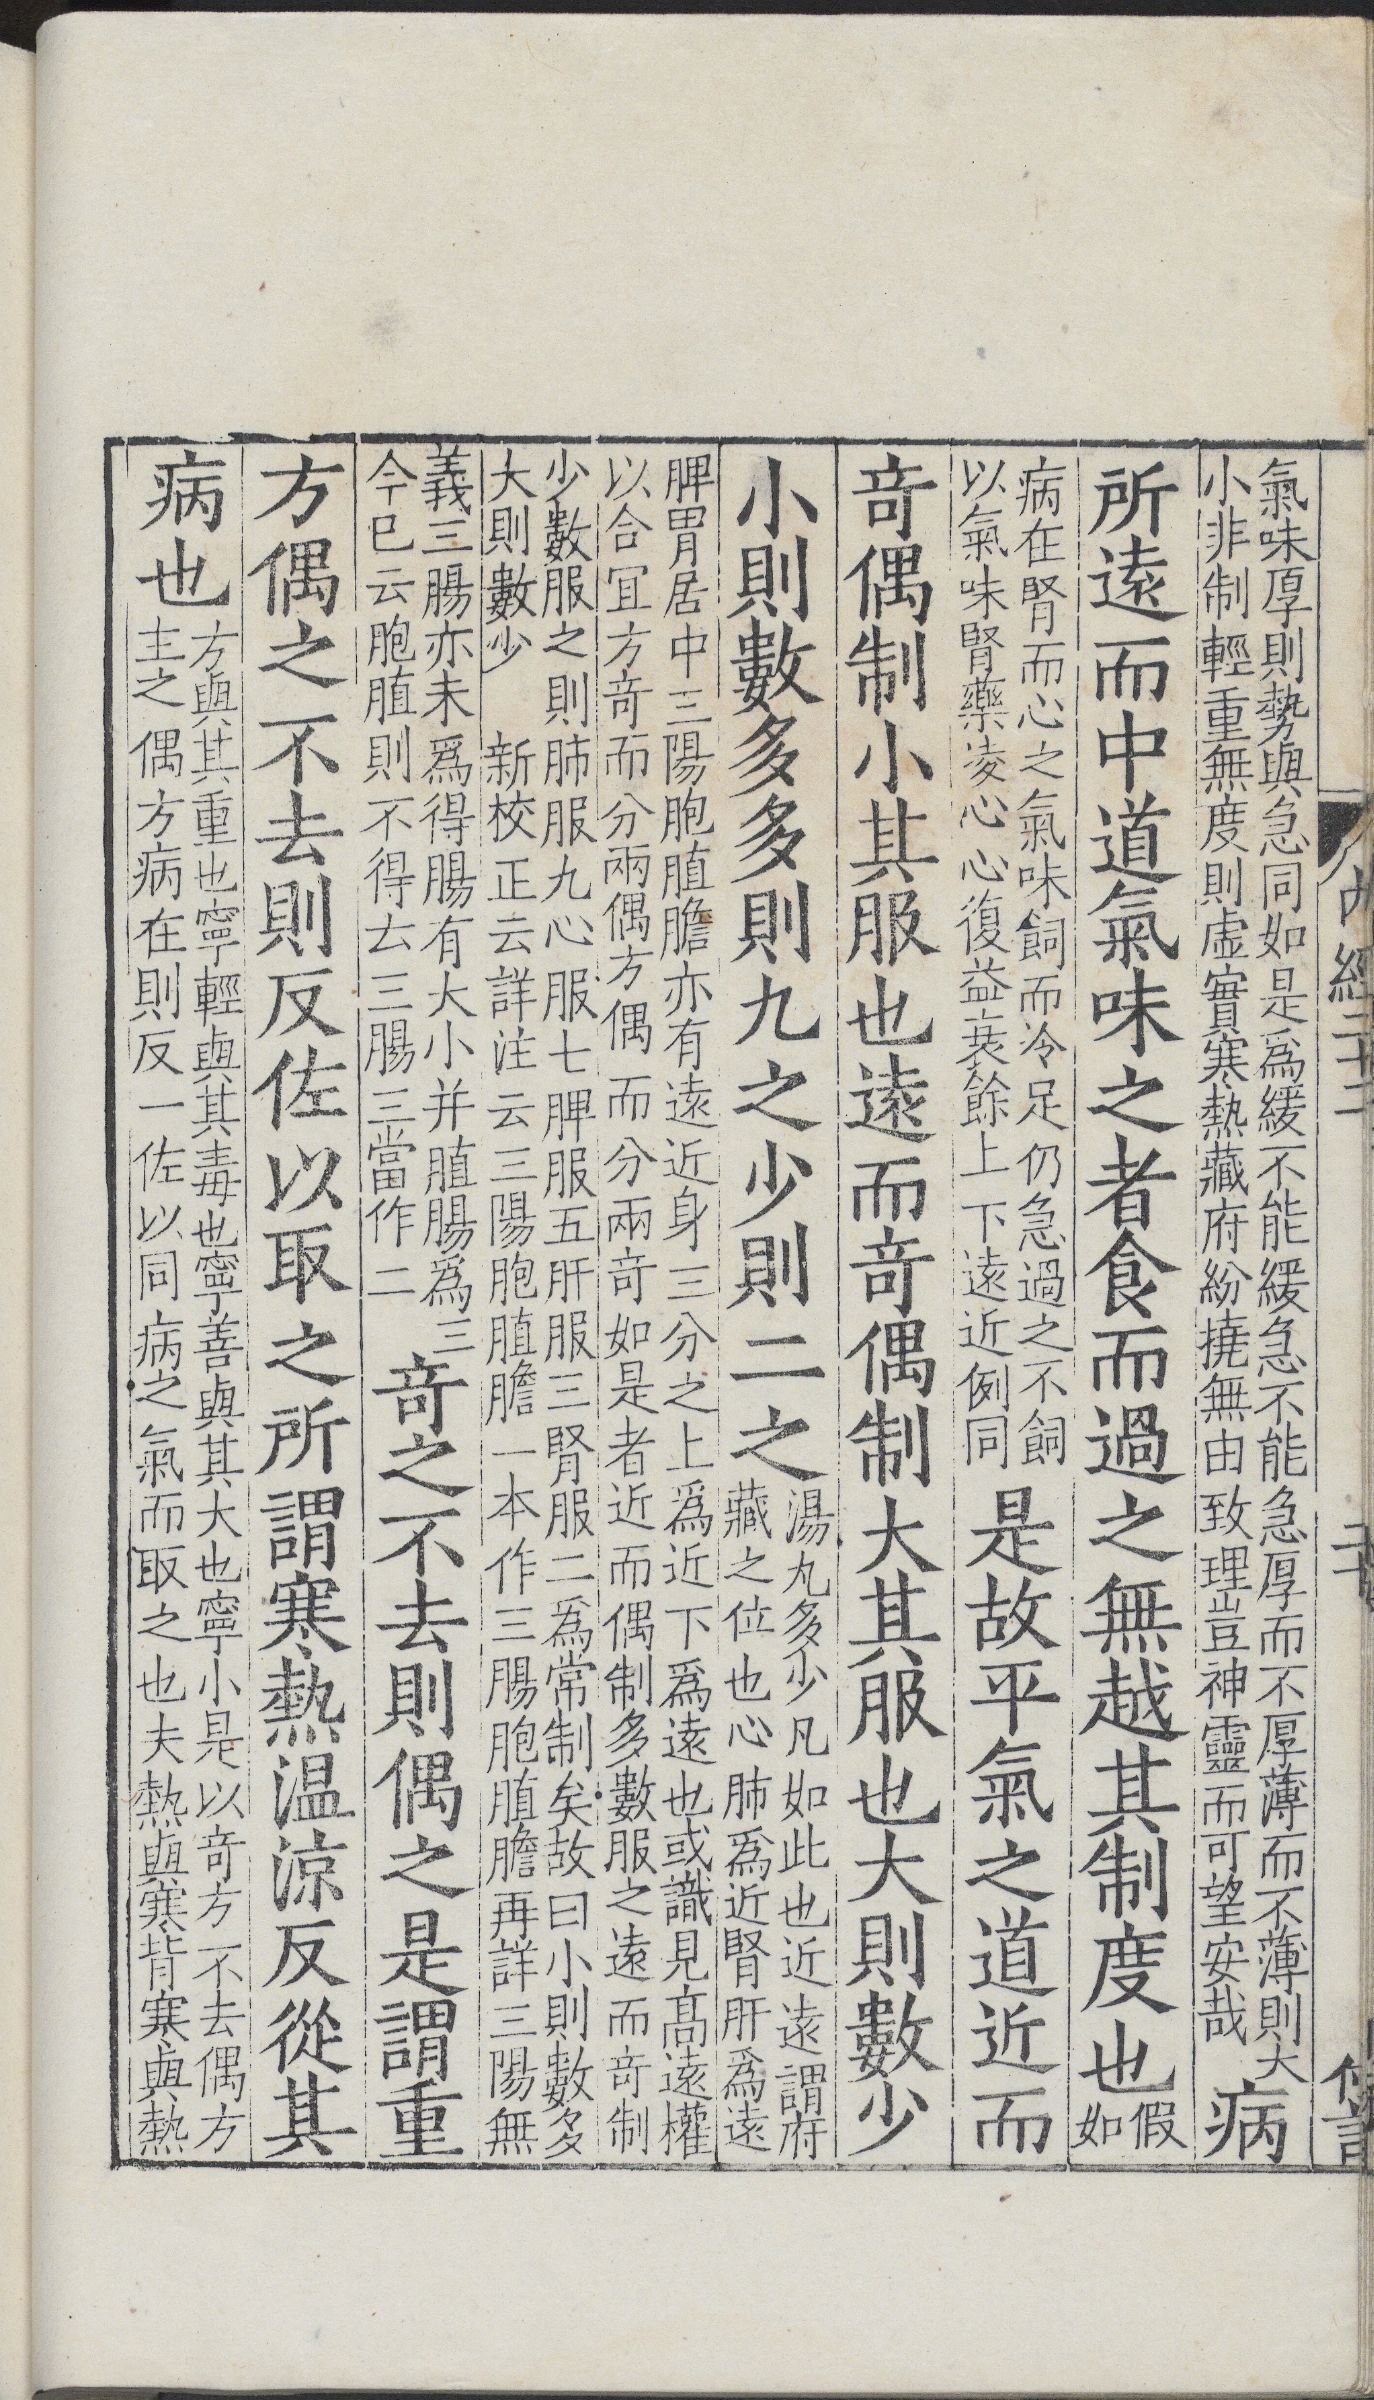 氣味厚則勢與急同如是爲緩不能緩急不能急厚而不厚薄而不薄則大
小非制輕重無度則虛實寒熱藏府紛撓無由致理豈神靈而可望安哉
病
所遠而中道氣味之者食而過之無越其制度也
假
如
病在腎而心之氣味飼而冷足仍急過之不飼
以氣味腎藥凌心心復益衰餘上下遠近例同
是故平氣之道近而
奇偶制小其服也遠而奇偶制大其服也大則數少
小則數多多則九之少則二之
湯丸多少凡如此也近遠謂府
藏之位也心肺爲近腎肝爲遠
脾胃居中三陽胞䐈膽亦有遠近身三分之上爲近下爲遠也或識見高遠權
以合宜方奇而分兩偶方偶而分兩奇如是者近而偶制多數服之遠而奇制
少數服之則肺服九心服七脾服五肝服三腎服二爲常制矣故曰小則數多
大則數少 新校正云詳注云三陽胞䐈膽一本作三腸胞䐈膽再詳三陽無
義三腸亦未爲得腸有大小并䐈腸爲三
今已云胞䐈則不得云三腸三當作二
奇之不去則偶之是謂重
方偶之不去則反佐以取之所謂寒熱温涼反從其
病也
方與其重也寧輕與其毒也寧善與其大也寧小是以奇方不去偶方
主之偶方病在則反一佐以同病之氣而取之也夫熱與寒背寒與熱
內經二十二
二十